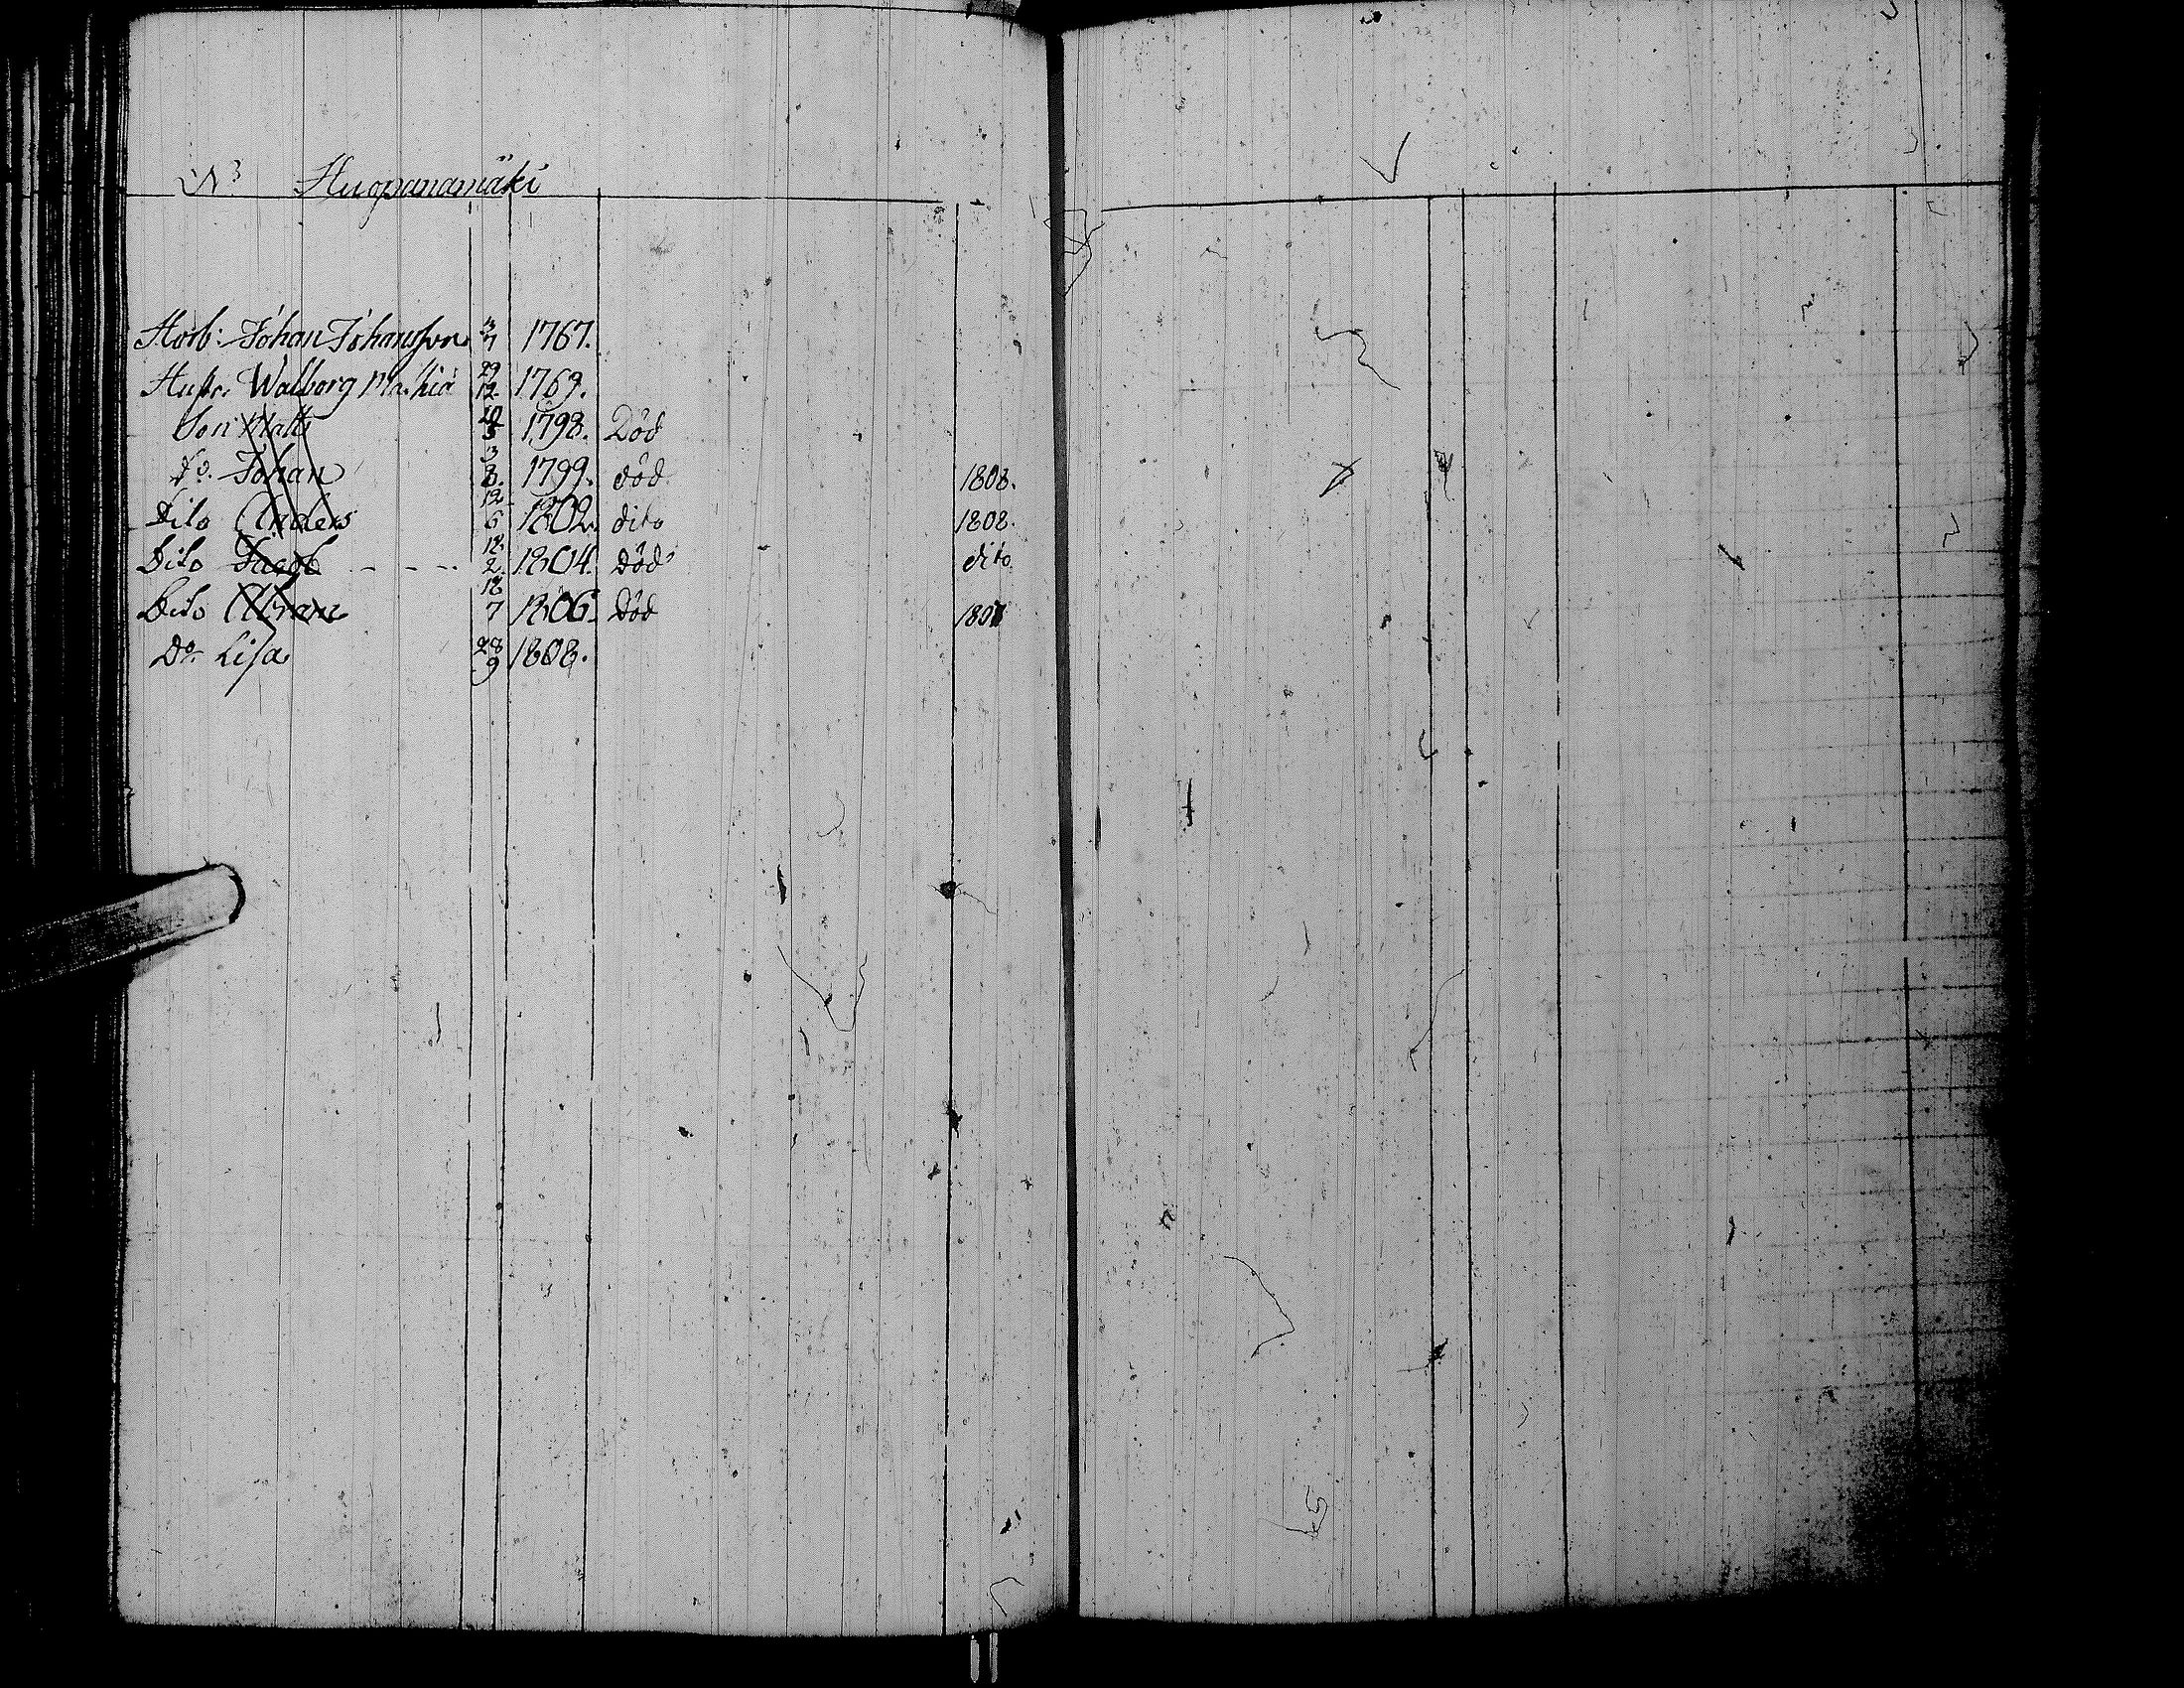 N 3 Huopanamäki
Torp: Johan Johansson 3/7 1767.
Hustr. Walborg Mathia 29/12 1769.
Son Matts 10/5 1798. Död
do. Johan 3/8. 1799. död 1808.
Dito Anders 12/6 1802. dito 1808.
Dito Jacob - - - - 12/2. 1804. Död dito
Dito Abram 18/7 1806. Död 1808
Do. Lisa 28/9 1808.